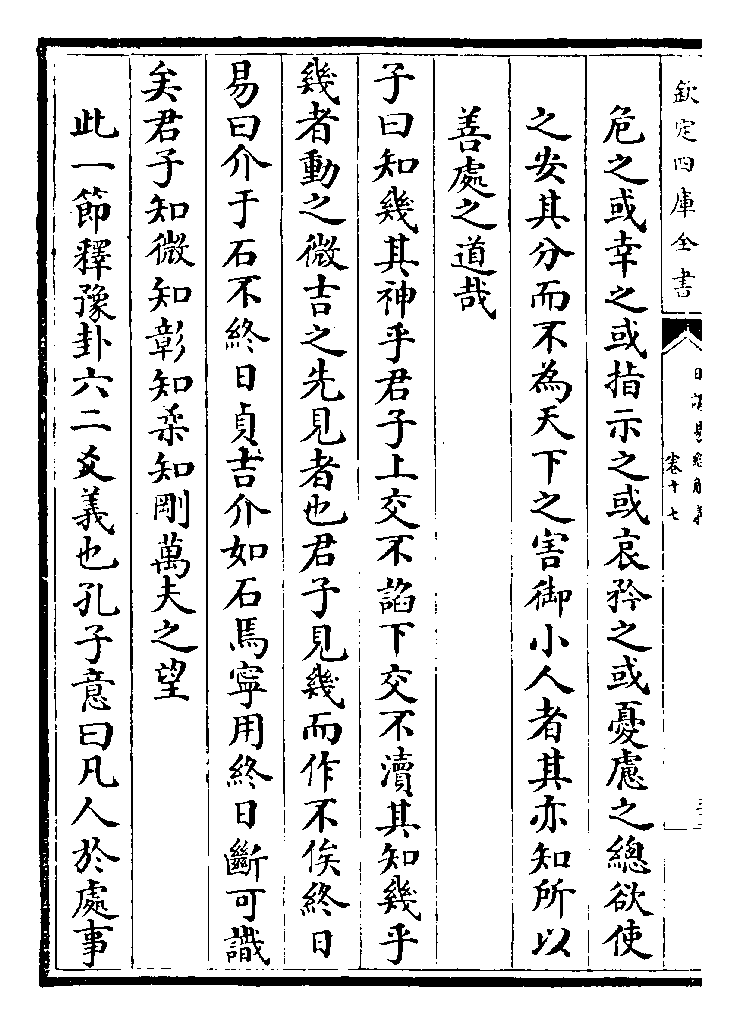 欽定四庫全書
日講易經解義
卷十七
危之或幸之或指示之或哀矜之或憂慮之總欲使
之安其分而不為天下之害御小人者其亦知所以
善處之道哉
子曰知幾其神乎君子上交不諂下交不瀆其知幾乎
幾者動之微吉之先見者也君子見幾而作不俟終日
易曰介于石不終日貞吉介如石焉寧用終日斷可識
矣君子知微知彰知柔知剛萬夫之望
此一節釋豫卦六二爻義也孔子意曰凡人於處事